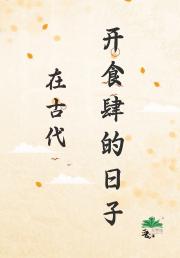 在古代
开食肆的日子